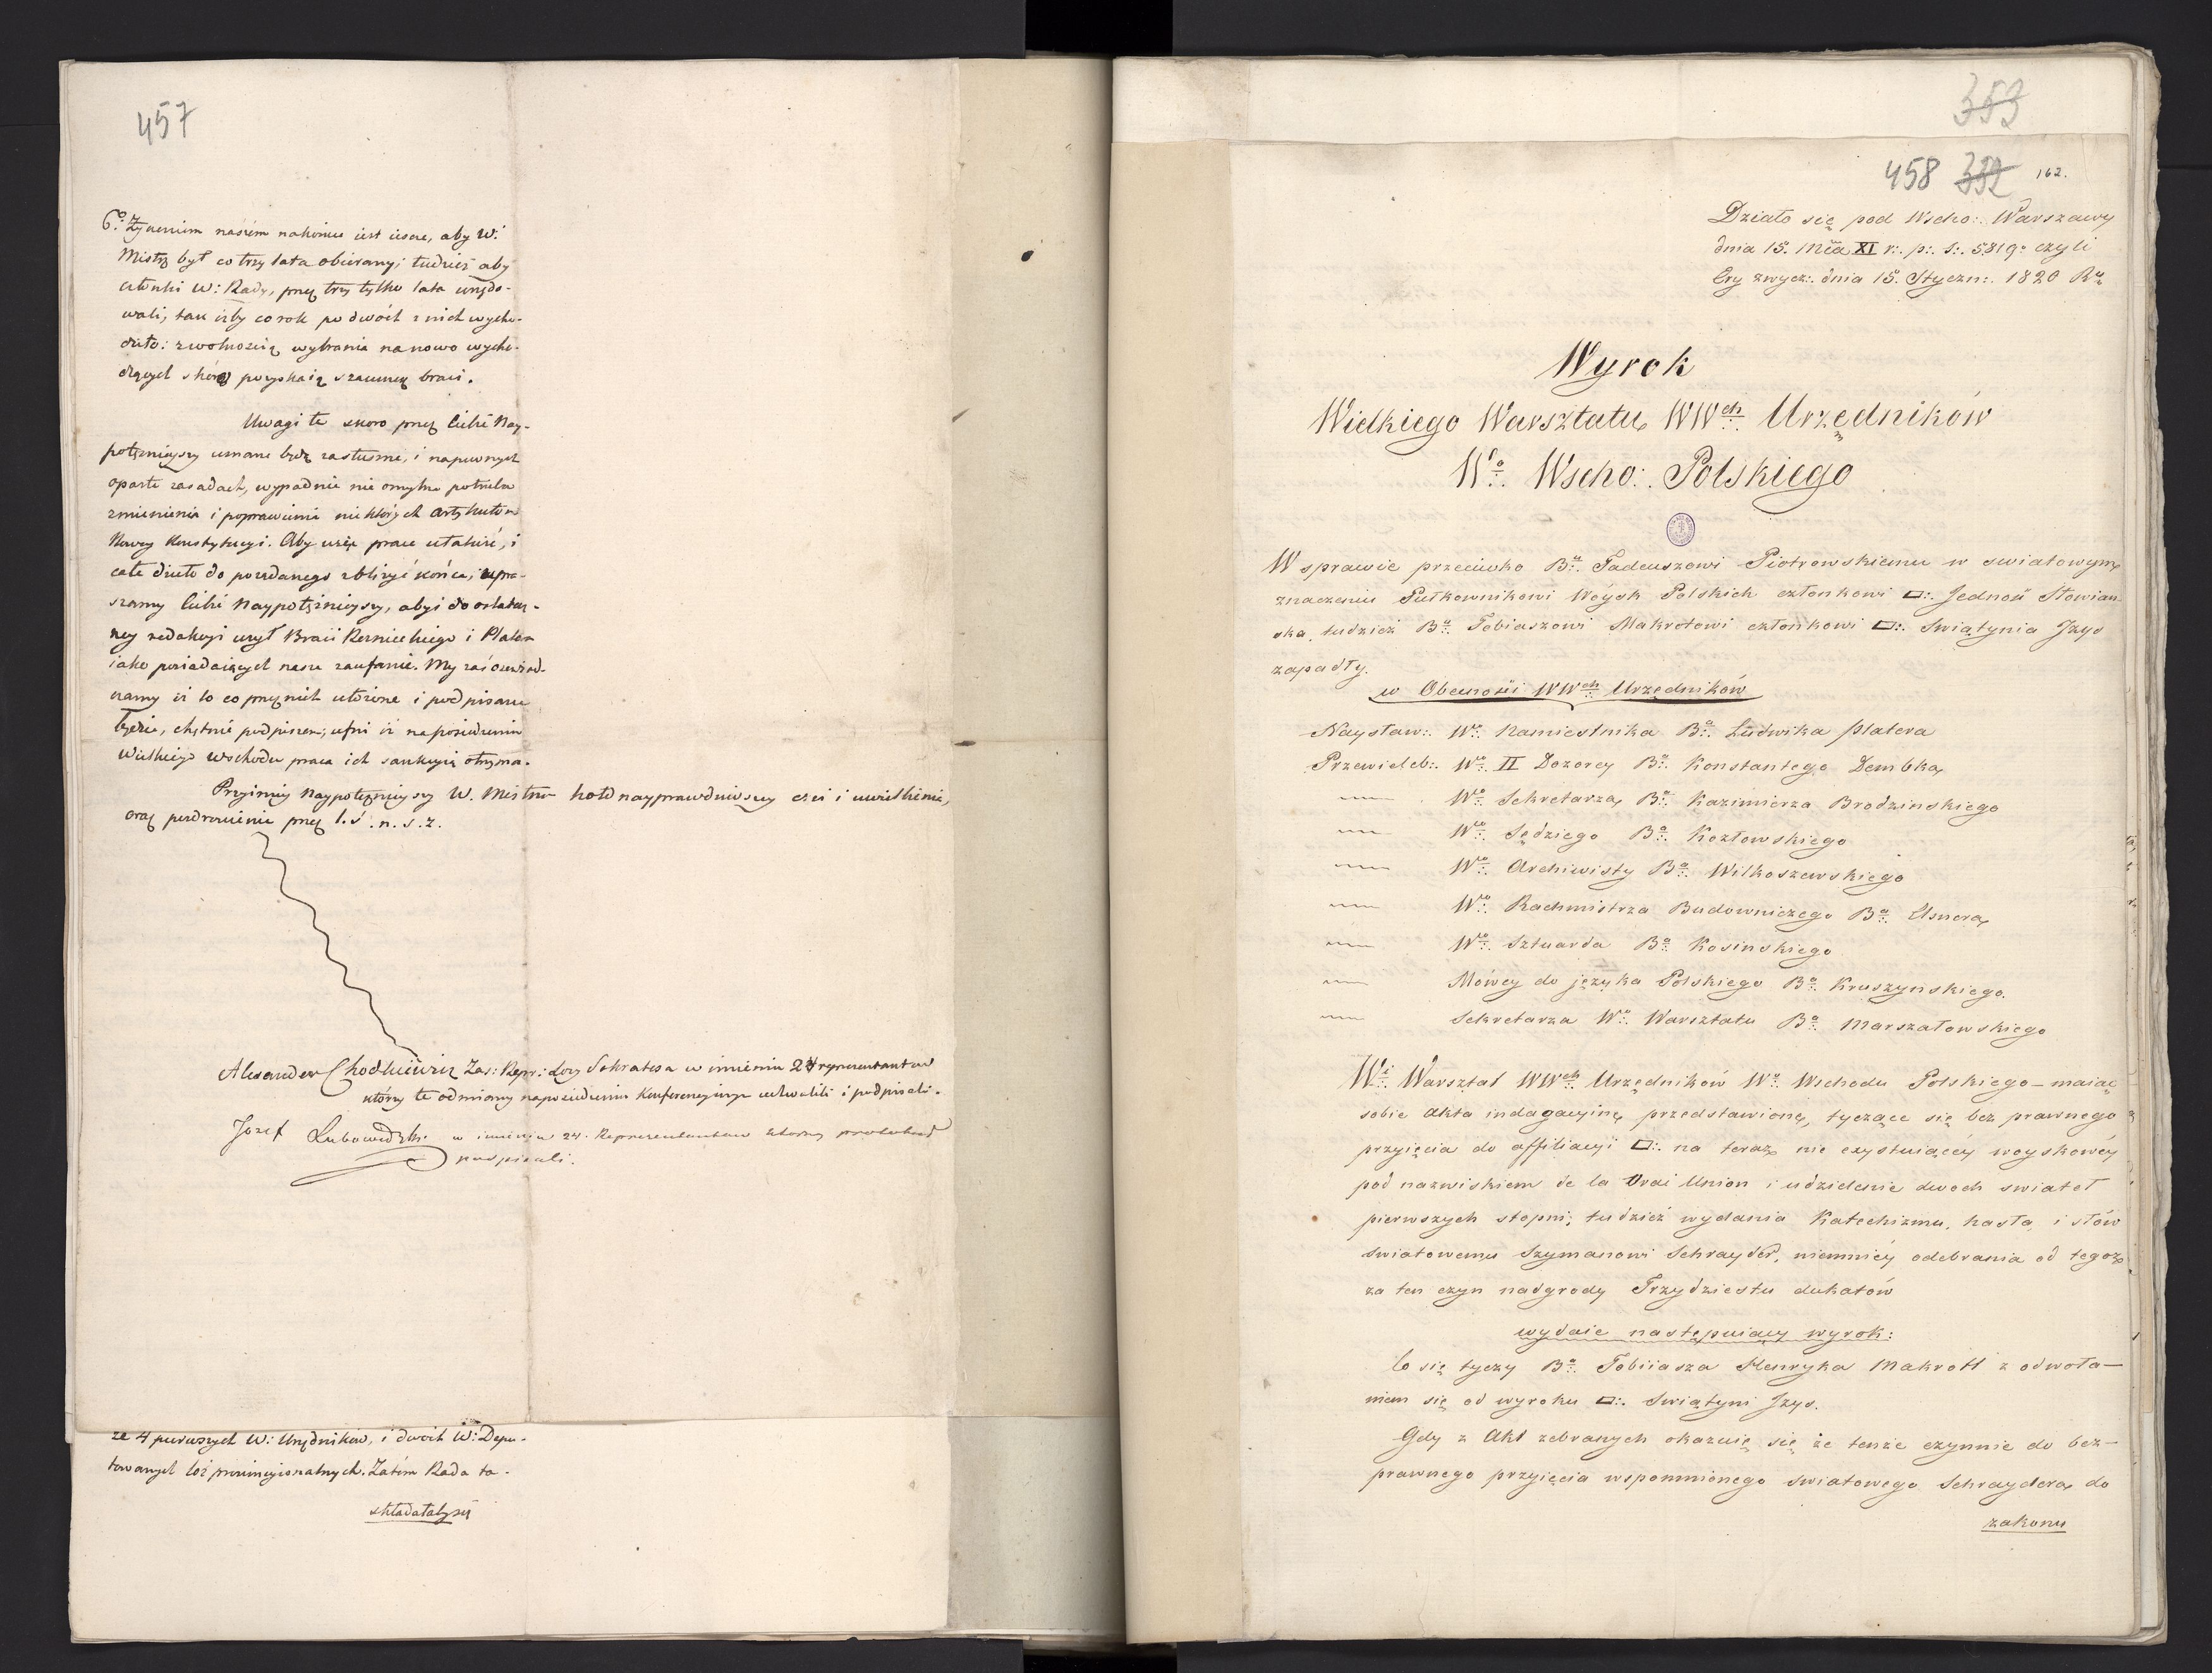 457
6º Życzeniem naszem nakoniec iest iescze, aby W:
Mistrz był co trzy lata obierany; tudzież aby
członki W: Rady, przez trzy tylko lata urzędo-
wali, tak iżby co rok po dwóch z nich wycho-
dziło: z wolnością wybrania na nowo wycho-
dzących skoro pozyskaią szacunek braci.
Uwagi te skoro przez Ciebie Nay-
potężnieyszy uznane będą za słuszne, i na pewnych
oparte zasadach, wypadnie nie omylna potrzeba
zmienienia i poprawienia niektórych Artykułów
Nowey Konstytucyi. Aby więc prace ułatwić, i
całe dzieło do pożądanego zbliżyć końca, upra-
szamy Ciebie Naypotężnieyszy, abyś do ostatecz-
ney redakcyi użył Braci Rernickiego i Platera
iako posiadaiących nasze zaufanie. My zaś oświad-
czamy iż to co przez nich ułożone i podpisane
będzie, chętnie podpiszem, ufni iż na posiedzeniu
Wielkiego Wschodu praca ich sankcyią otrzyma.
Przyimiy Naypotężnieyszy W. Mistrzu hołd nayprawdziwszey czci i uwielbienia,
oraz pozdrowienie przez l. ś. n. s. z.
Alexander Chodkiewicz Zas: Repr: Loży Sokratesa w imieniu 24 reprezentantów
którzy te odmiany na posiedzeniu Konferencyinym uchwalili i podpisali.
Jozef Lubowidzki w imieniu 24. Reprezentantow którzy protokuł
podpisali.
ze 4 pierwszych W: Urzędników, i dwóch W: Depu-
towanych lóż prowincyionalnych. Zatém Rada ta-
składałaby się
353
458 352 162.
Działo się pod Wscho:. Warszawy
dnia 15. Mca XI r:. p:. ś:. 5819. czyli
Ery zwycz:. dnia 15. Styczn:. 1820 Ru
Wyrok
Wielkiego Warsztatu WWch Urzędników
Wo Wscho:. Polskiego
W sprawie przeciwko Bu:. Tadeuszowi Piotrowskiemu w swiatowym
znaczeniu Pułkownikowi Wóysk Polskich członkowi □:. Jedność Słowian
ska, tudzież Bu:. Tobiaszowi Makrotowi członkowi □:. Swiątynia Jzys
zapadły.
w Obecności WWch Urzędników
Naysław:. Wo Namiestnika Ba:. Ludwika Platera
Przewieleb:. Wo II Dozorcy Ba:. Konstantego Dembka
Wo Sekretarza, Ba:. Kazimierza Brodzinskiego
Wo Sędziego Ba:. Kozłowskiego
Wo Archiwisty Ba:. Wilkoszewskiego
Wo Rachmistrza Budowniczego Ba:. Elsnera
Wo Sztuarda Ba:. Kosinskiego
Mówcy do języka Polskiego Ba:. Kruszynskiego.
Sekretarza Wo:. Warsztatu Ba:. Marszałowskiego
Wi:. Warsztat WWch Urzędników Wo:. Wschodu Polskiego – maiąc
sobie akta indagacyine, przedstawione, tyczące się bez prawnego
przyięcia do affiliacyi □:. na teraz nie exystuiącéy woyskowéy
pod nazwiskiem de la Vrai Union i udzielenie dwoch swiateł
pierwszych stopni; tudzież wydania Katechizmu, hasła, i słów
swiatowemu Szymanowi Schrayder, niemniéy odebrania od tegoż
za ten czyn nadgrody Trzydziestu dukatów
wydaie następuiący wyrok:
Co się tyczy Ba:. Tobiiasza Henryka Makrott z odwoła—
niem się od wyroku □:. Swiątyni Jzys.
Gdy z Akt zebranych okazuie się że tenże czynnie do bez—
prawnego przyięcia wspomnionego swiatowego Schraydera do
zakonu